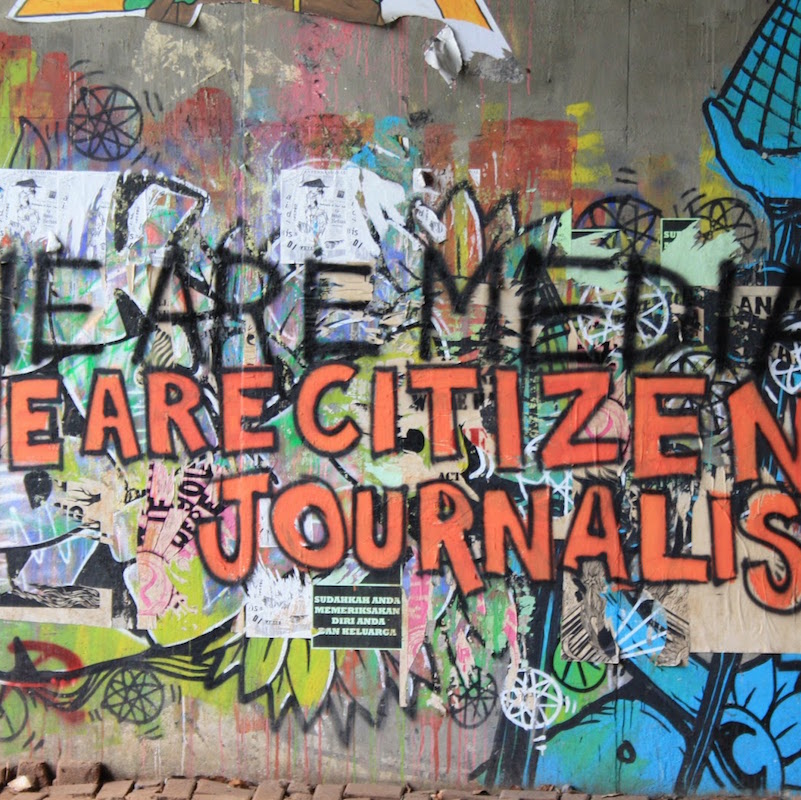 E ARE MEDIA
E ARE CITIZEN
JOURNALIS
SUDAHKAH ANDA
MEMERIKSAKAN
DIRI ANDA
DAN KELUARGA